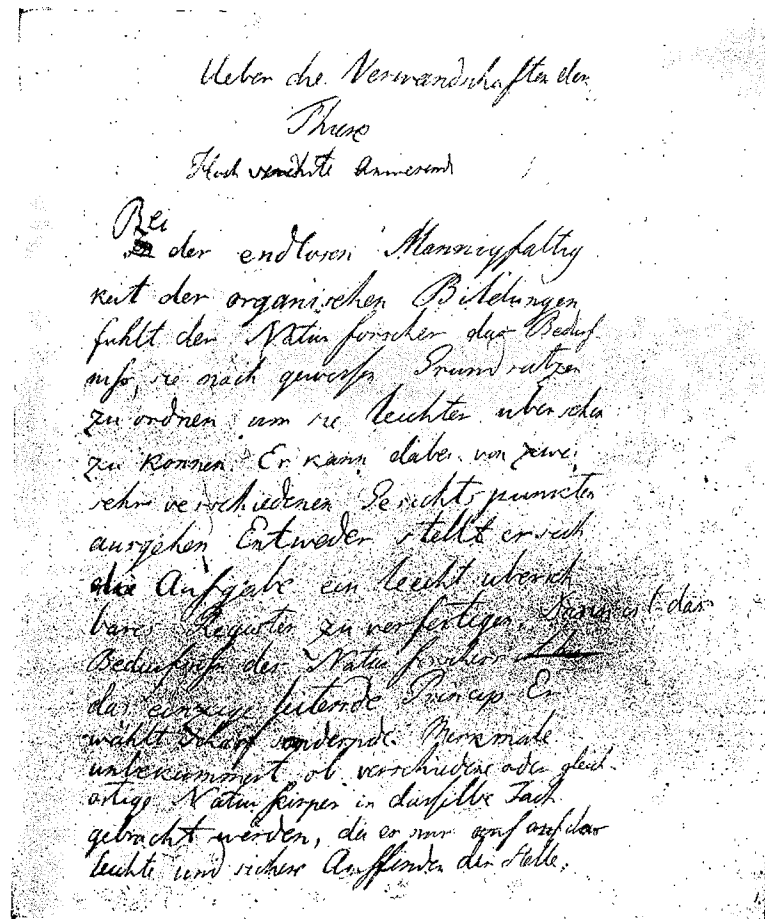 Ueber die Verwandschaften der
Thiere
Hoch verehrte Anwesend
Bei
der endlosen Mannigfaltig
keit der organischen Bildungen
fuhlt der Natur forscher das Beduf
niß, sie nach gewissen Grund satzen
zu ordnen um sie leichter uber sehen
zu konnen. Er kann dabei von zwei
sehr verschiedenen Gesichts punkten
ausgehen Entweder stellt er sich
die Aufgabe ein leicht ubersich
bares Register zu verfertigen. Dann ist das
Bedurfniß des Natur forschers
das einzige leitende Princip Er
wählt scharf sondernde Merkmale
unbekummert ob verschiedene oder gleich
artige Natur korper in dasselbe Fach
gebracht werden, da er nur auf auf das
leichte und sichere Auffinden der Stelle,